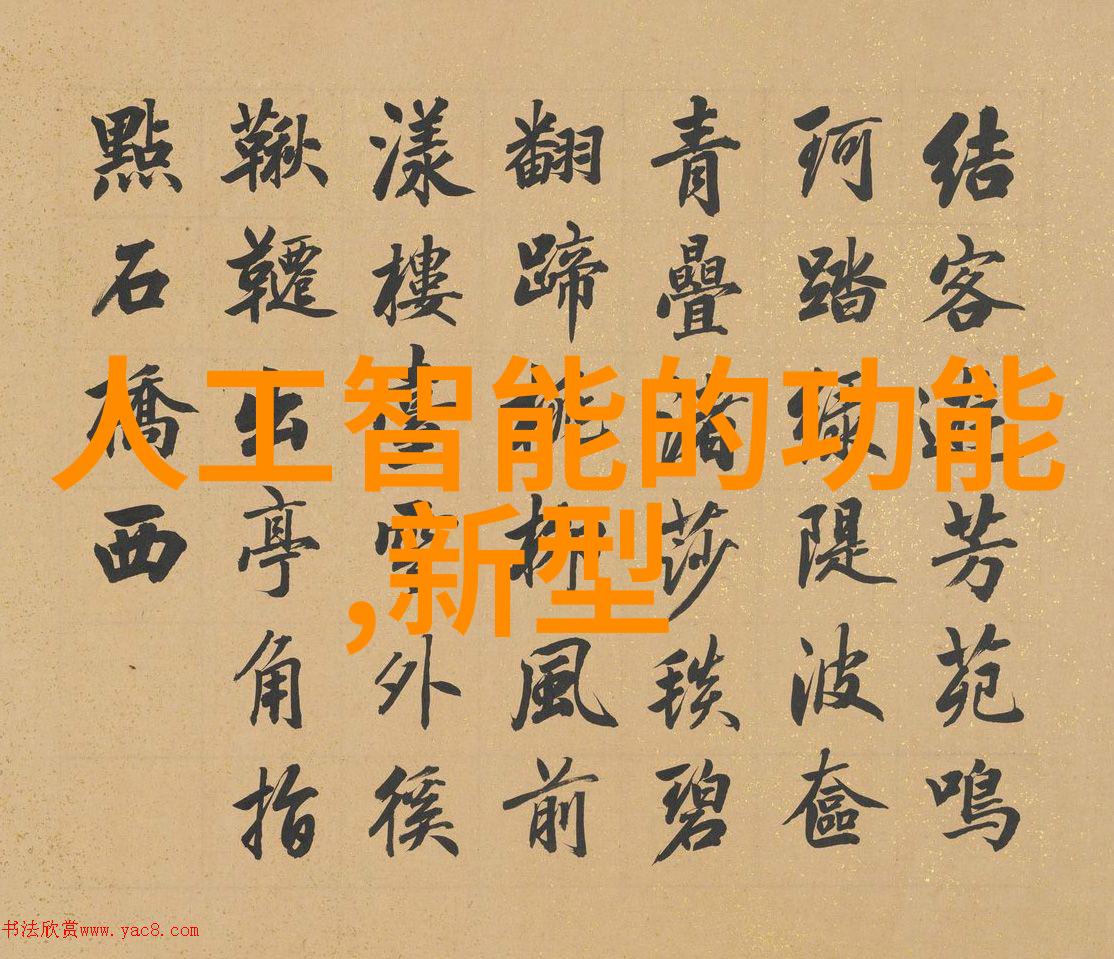 人工智能的功能
,新型
結客芳苑鳴
珂踏綠隄波奩
青疊渚莎毯碧
翻蹄柳風前
漾樓臺雲外徯
鞦韆出亭角指
點石橋西
书法欣赏www.yac8.com